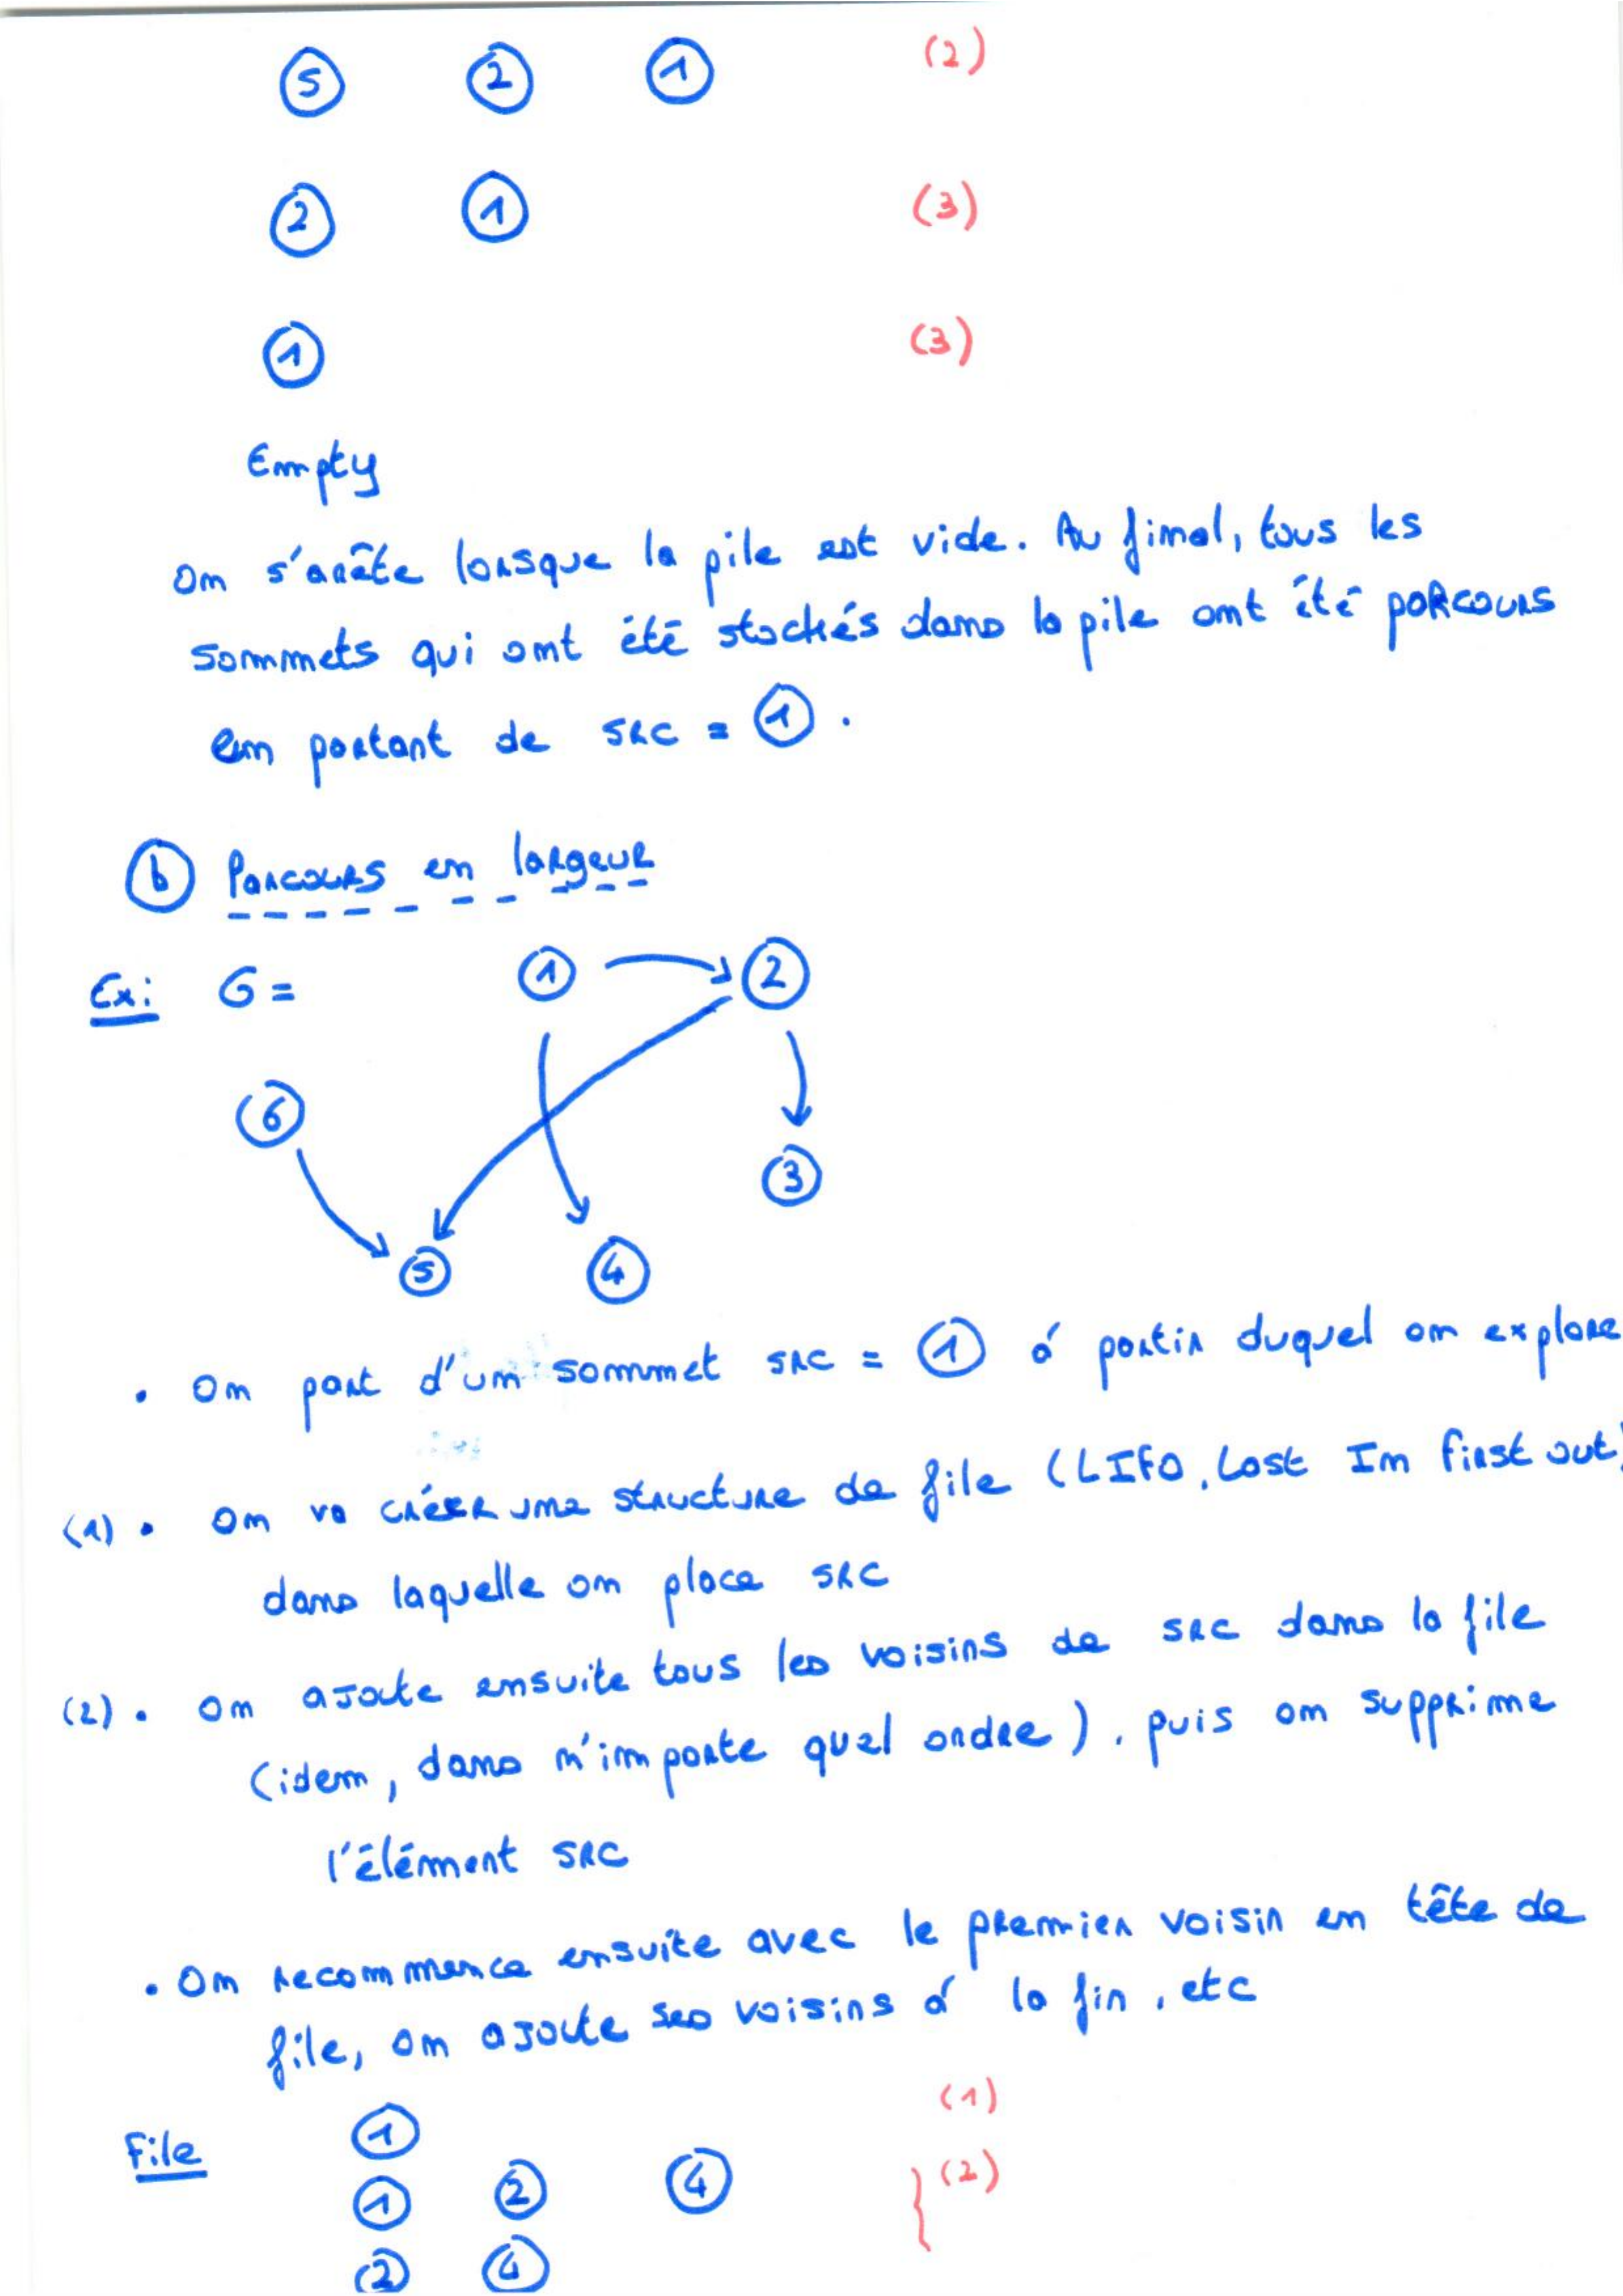 5 2 1 (2)
2 1 (3)
1 (3)
Empty
On s'arrête lorsque la pile est vide. Au final, tous les
sommets qui ont été stockés dans la pile ont été parcours
en partant de src = 1.
b Parcours en largeur
Ex: G = 1 2
6
3
5 4
• On part d'un sommet src = 1 à partir duquel on explore
(1) • On va créer une structure de file (LIFO, Last In First out)
dans laquelle on place src
(2) • On ajoute ensuite tous les voisins de src dans la file
(idem, dans n'importe quel ordre), puis on supprime
l'élément src
• On recommence ensuite avec le premier voisin en tête de
file, on ajoute ses voisins à la fin, etc
File 1 (1)
1 2 4 } (2)
2 4